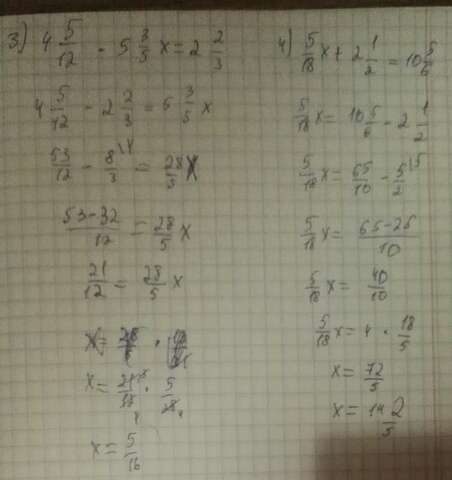 3) 4 5/12 - 5 3/5 x = 2 2/3
4 5/12 - 2 2/3 = 5 3/5 x
53/12 - 8/3 \4 = 28/5 x
53-32/12 = 28/5 x
21/12 = 28/5 x
x = 21/12 · 5/28
x = 5/16
4) 5/18 x + 2 1/2 = 10 5/6
5/18 x = 10 5/6 - 2 1/2
5/18 x = 65/10 - 5/2 \5
5/18 x = 65-25/10
5/18 x = 40/10
5/18 x = 4 · 18/5
x = 72/5
x = 14 2/5